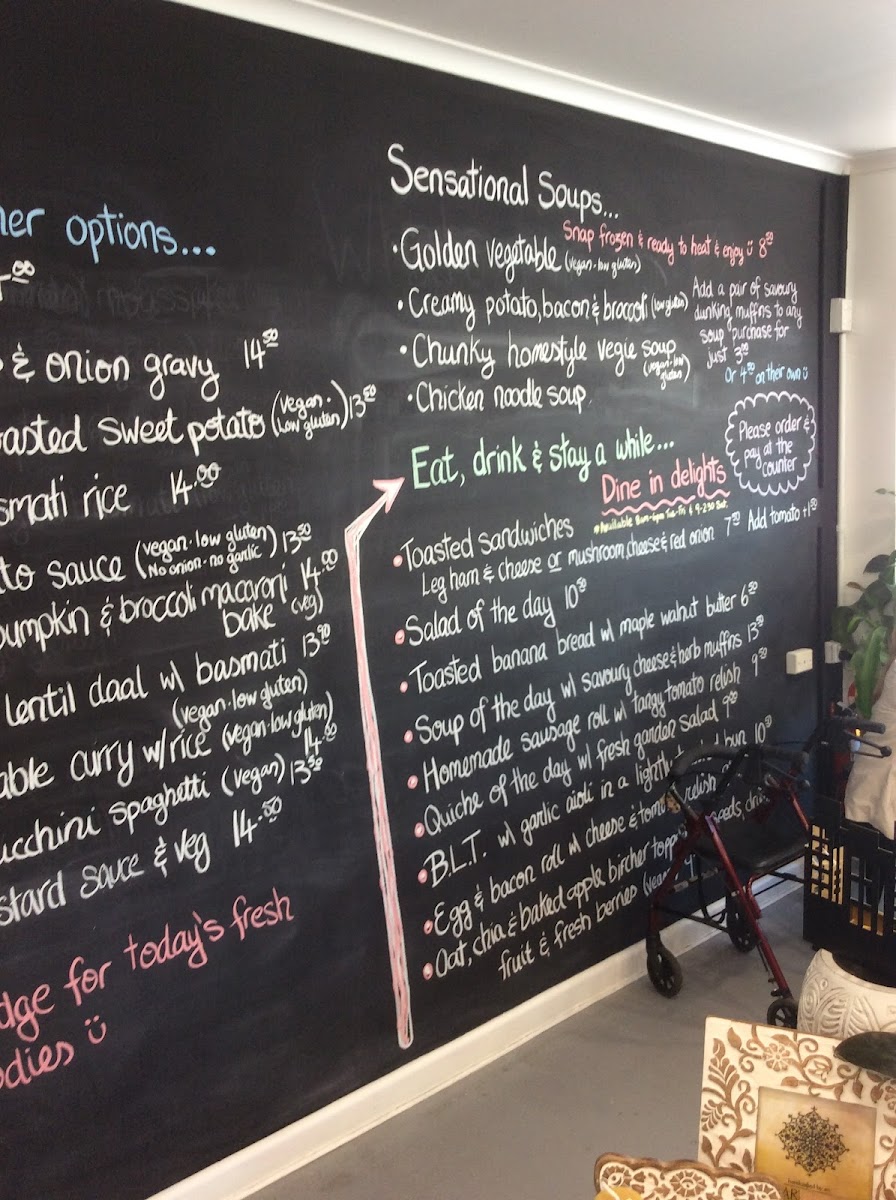 options...
& onion gravy 14.50
sweet potato (vegan. low gluten) 13.50
rice 14.00
sauce (vegan. low gluten) 13.50
No onion. no garlic
pumpkin & broccoli macaroni 14.00
bake (veg)
lentil daal w/ basmati 13.90
(vegan. low gluten)
curry w/ rice (vegan. low gluten)
14.00
spaghetti (vegan) 13.50
sauce & veg 14.50
for today's fresh
Sensational Soups...
Snap frozen & ready to heat & enjoy 8.50
• Golden vegetable (vegan. low gluten)
• Creamy potato, bacon & broccoli (low gluten)
• Chunky homestyle vegie soup
(vegan. low gluten)
• Chicken noodle soup
Add a pair of savoury
dunking muffins to any
soup purchase for
just 3.00
Or 4.50 on their own
Please order &
pay at the
counter
Eat, drink & stay a while...
Dine in delights
*Available 8am-6pm Tue-Fri & 9-2:30 Sat.
• Toasted sandwiches
Leg ham & cheese or mushroom, cheese & red onion 7.50 Add tomato +1.50
• Salad of the day 10.50
• Toasted banana bread w/ maple walnut butter 6.50
• Soup of the day w/ savoury cheese & herb muffins 13.50
• Homemade sausage roll w/ tangy tomato relish 9.50
• Quiche of the day w/ fresh garden salad 9.00
• B.L.T. w/ garlic aioli in a lightly bun 10.50
• Egg & bacon roll w/ cheese & relish
• Oat, chia & baked apple bircher seeds,
fruit & fresh berries